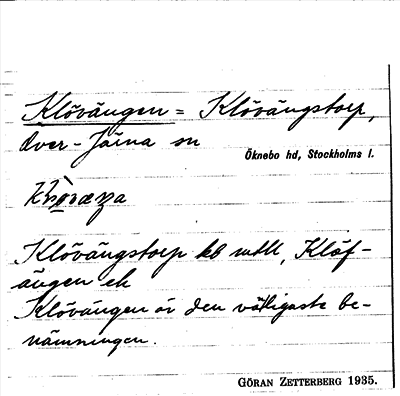 Klövängen = Klövängstorp,
Över-Järna sn
Öknebo hd, Stockholms l.
Klövängstorp kb mtll, Klöf-
ängen ek
Klövängen är den vanligaste be-
nämningen.
GÖRAN ZETTERBERG 1935.